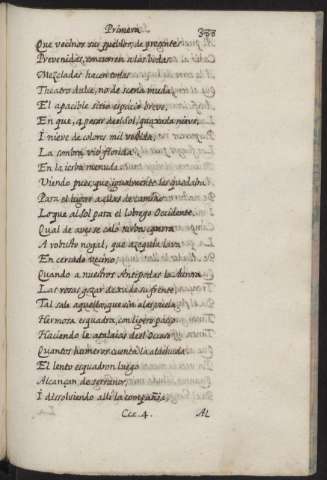 Primera
Que vechinos sus pueblos, de presentes
Prevenidas, concurren a las bodas
Mezcladas hacen todas
Theatro dulce, no de scena muda
El apacible sitio: espacio breve,
En que, a pesar del sol, quajada nieve,
I nieve de colores mil vestida,
La sombra vió florida
En la ierba menuda
Viendo pues que igualmente les quedaba
Para el lugar a ellas de camino
Lo que al sol para el lobrego Occidente,
Qual de aves se caló turba canora
A robusto nogal, que azequia lava
En cercado vecino,
Quando a nuestros Antipodas la Aurora
Las rosas gozar dexa de su frente,
Tal sale aquella, que sin alas vuela
Hermosa esquadra, con ligero passo
Haciendo le atalaias del Ocaso
Quantos humeros cuenta la aldehuela
El lento esquadron luego
Alcançan de serranos,
I disolviendo alli la compañia,
Ccc. 4. Al